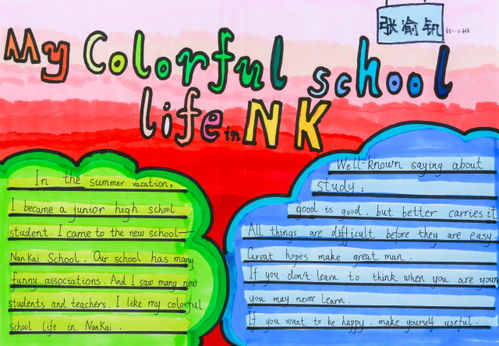 张渝钒
My Colorful school
life in NK
In the summer vacation,
I became a junior high school
student. I came to the new school
NanKai School. Our school has many
funny associations. And I saw many new
students and teachers. I like my colorful
school life in NanKai.
Well-known saying about
study:
good is good, but better carries it
All things are difficult before they are easy.
Great hopes make great man.
If you don't learn to think when you are youn
you may never learn.
If you want to be happy, make yourself useful.